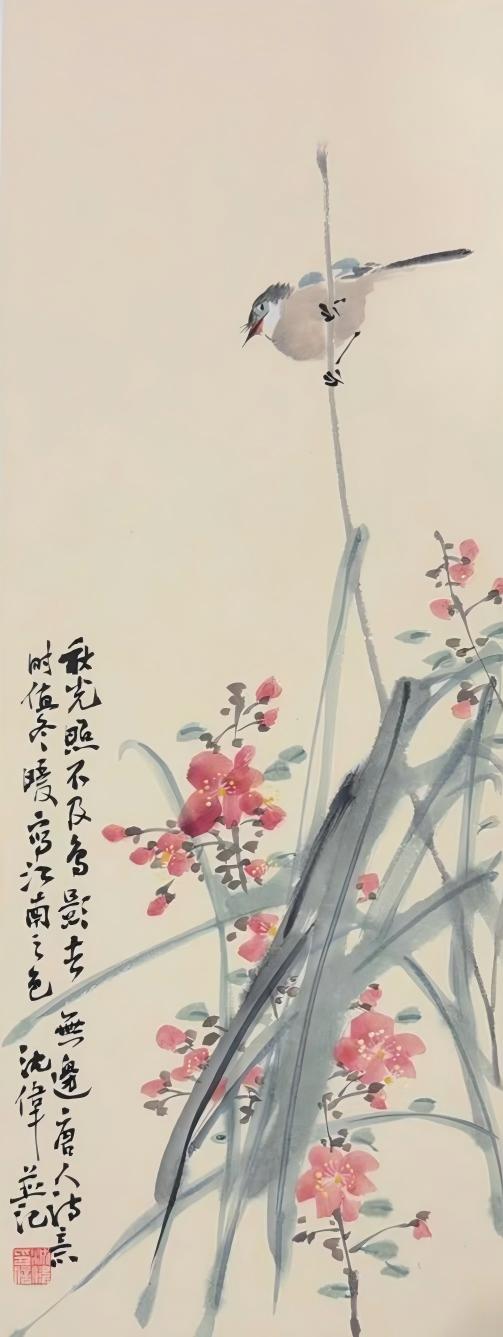 秋光照不及鸟影去無邊唐人诗意
时值冬暖寫江南之色 沈偉並记